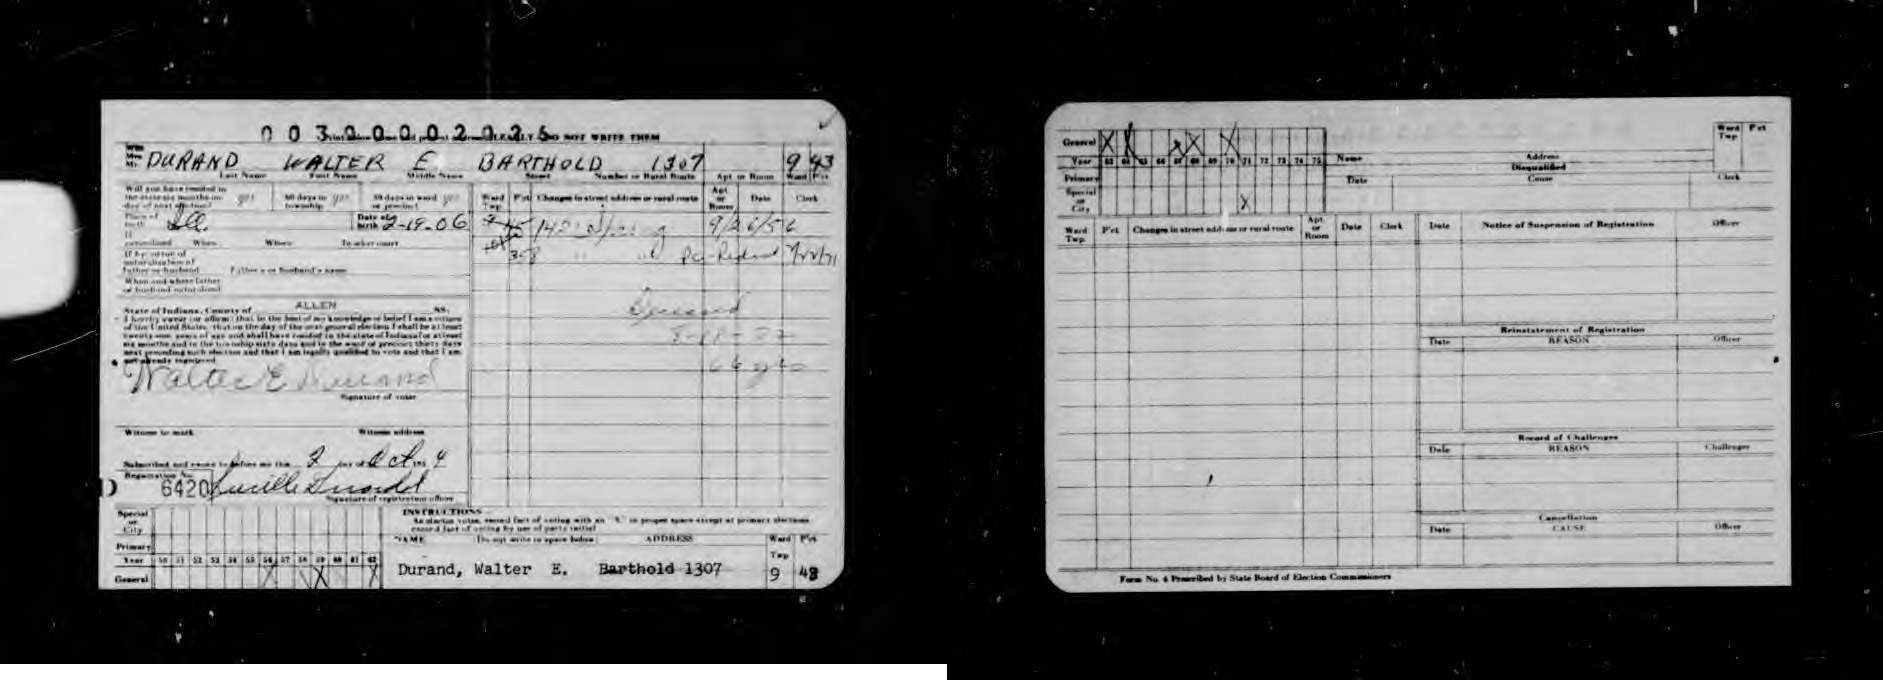 0 0 3 0 0 0 0 2 0 2 6 DO NOT WRITE THEM
Miss
Mrs
Mr. DURAND WALTER E. BARTHOLD 1307 9 43
Last Name First Name Middle Name Street Number or Rural Route Apt or Room Ward P'ct
Will you have resided in the state six months on day of next election? yes 60 days in township yes 30 days in ward or precinct yes
Ward Twp P'ct Changes in street address or rural route Apt. or Room Date Clerk
Place of birth Ill. Date of birth 2-19-06
9/26/56
If naturalized When Where In what court
358 Pc-Redist 7/22/71
If by virtue of naturalization of father or husband Father's or husband's name
When and where father or husband naturalized
Deceased
66 yrs
State of Indiana, County of ALLEN SS:
I hereby swear (or affirm) that to the best of my knowledge or belief I am a citizen
of the United States, that on the day of the next general election I shall be at least
twenty-one years of age and shall have resided in the state of Indiana for at least
six months and in the township sixty days and in the ward or precinct thirty days
next preceding such election and that I am legally qualified to vote and that I am
not already registered.
Walter E Durand
Signature of voter
Witness to mark Witness address
Subscribed and sworn to before me this 2 day of Oct 195 4
Registration No.
6420 Lucille
Signature of registration officer
INSTRUCTIONS
As elector votes, record fact of voting with an "X" in proper space except at primary elections
record fact of voting by use of party initial
Special or City
Primary
Year 50 51 52 53 54 55 56 57 58 59 60 61 62
General X X X
NAME Do not write in space below ADDRESS Ward Twp P'ct
Durand, Walter E. Barthold 1307 9 43
General X X X
Year 63 64 65 66 67 68 69 70 71 72 73 74 75
Primary
Special or City X
Name Address Ward Twp P'ct
Disqualified
Date Cause Clerk
Ward Twp. P'ct Changes in street address or rural route Apt. or Room Date Clerk
Date Notice of Suspension of Registration Officer
Reinstatement of Registration
Date REASON Officer
Record of Challenges
Date REASON Challenger
Cancellation
Date CAUSE Officer
Form No. 4 Prescribed by State Board of Election Commissioners